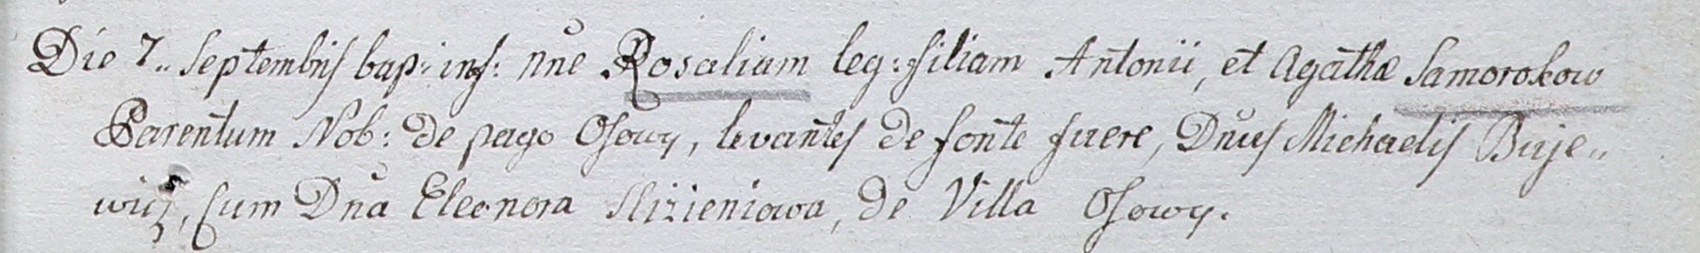 Die 7.. Septembris bap: inf: nne Rosaliam leg: filiam Antonii, et Agathæ Samorokow
Parentum Nob: de pago Osowy, levantes de fonte fuere, Dnus Michaelis Buje..
wicz, cum Dna Eleonora Slizieniowa, de Villa Osowy.